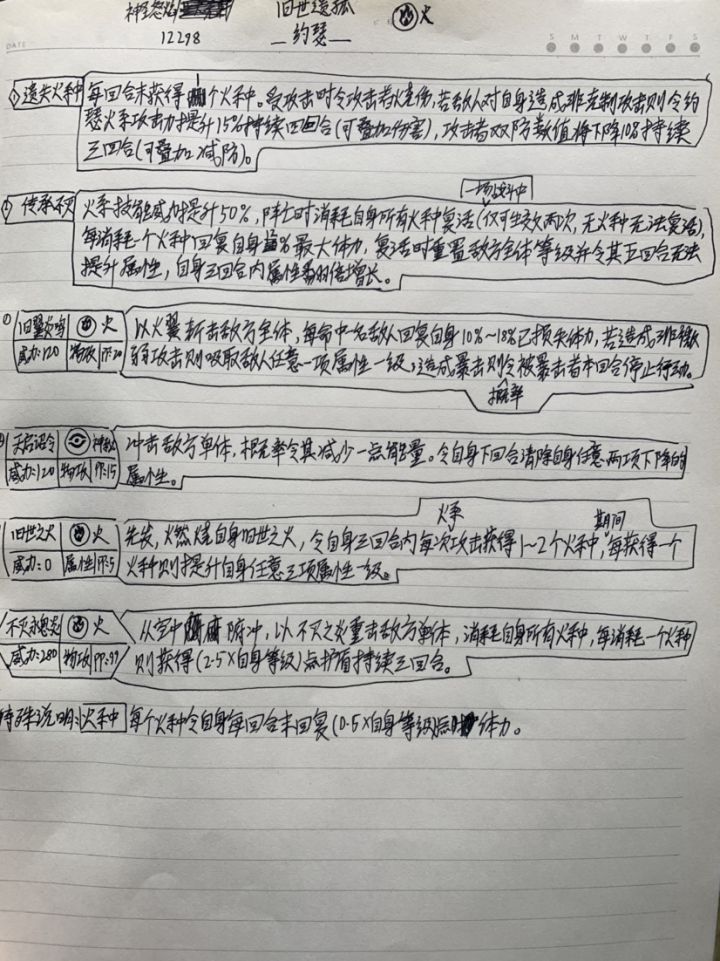 神圣怒焰 旧世遗孤 火
12298 —约瑟—
DATE
S M T W T F S
遗失火种 每回合末获得1个火种。受攻击时令攻击者烧伤,若敌人对自身造成非克制攻击则令约
瑟火系攻击力提升15%持续四回合(可叠加伤害),攻击者双防数值将下降10%持续
三回合(可叠加减防)。
一场战斗中
传承不灭 火系技能威力提升50%,阵亡时消耗自身所有火种复活(仅可生效两次,无火种无法复活),
每消耗一个火种回复自身%最大体力,复活时重置敌方全体等级并令其五回合无法
提升属性,自身三回合内属性翻倍增长。
旧翼哀鸣 火 以火翼斩击敌方全体,每命中一名敌人回复自身10%~18%已损失体力,若造成非微
威力:120 物攻 PP:20 弱攻击则吸取敌人任意一项属性一级,造成暴击则令被暴击者本回合停止行动。
概率
天启诏令 神秘 冲击敌方单体,概率令其减少一点能量。令自身下回合清除自身任意两项下降的
威力:120 物攻 PP:15 属性。
火系 期间
旧世之火 火 先发,燃烧自身旧世之火,令自身三回合内每次攻击获得1~2个火种,每获得一个
威力:0 属性 PP:5 火种则提升自身任意三项属性一级。
不灭永恩炎 火 从空中俯冲,以不灭之炎重击敌方单体,消耗自身所有火种,每消耗一个火种
威力:280 物攻 PP:99 则获得(2.5×自身等级)点护盾持续三回合。
特殊说明:火种 每个火种令自身每回合末回复(0.5×自身等级)点体力。